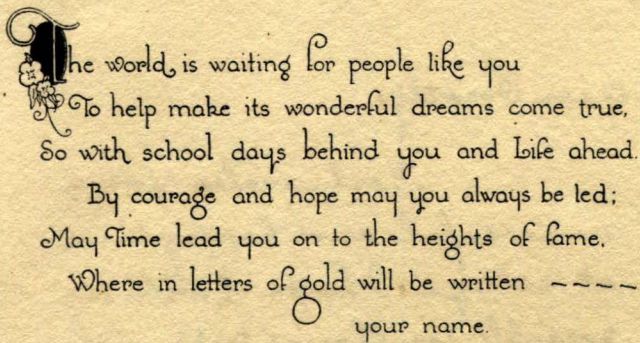 The world is waiting for people like you
To help make its wonderful dreams come true,
So with school days behind you and Life ahead.
By courage and hope may you always be led;
May Time lead you on to the heights of fame,
Where in letters of gold will be written ----
your name.